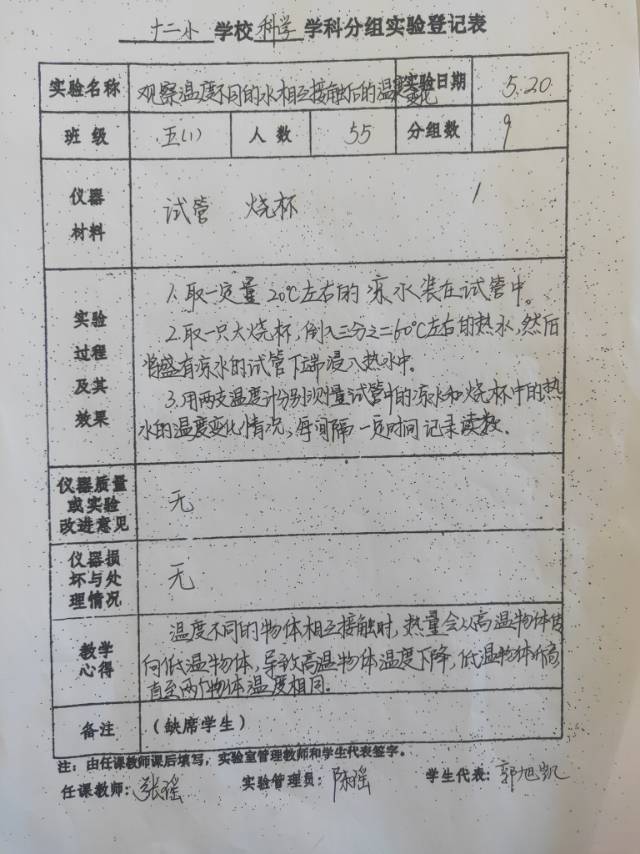 十二小 学校 科学 学科分组实验登记表
实验名称 观察温度不同的水相互接触后的温度变化 实验日期 5.20
班级 五(1) 人数 55 分组数 9
仪器材料 试管 烧杯
实验过程及其效果
1.取一定量20℃左右的凉水装在试管中。
2.取一只大烧杯,倒入三分之二60℃左右的热水,然后
将盛有凉水的试管下端浸入热水中。
3.用两支温度计分别测量试管中的凉水和烧杯中的热
水的温度变化情况,每间隔一定时间记录读数。
仪器质量或实验改进意见 无
仪器损坏与处理情况 无
教学心得
温度不同的物体相互接触时,热量会从高温物体传
向低温物体,导致高温物体温度下降,低温物体升高
直至两个物体温度相同.
备注 (缺席学生)
注:由任课教师课后填写,实验室管理教师和学生代表签字。
任课教师:张瑶 实验管理员:陈瑶 学生代表:郭旭凯